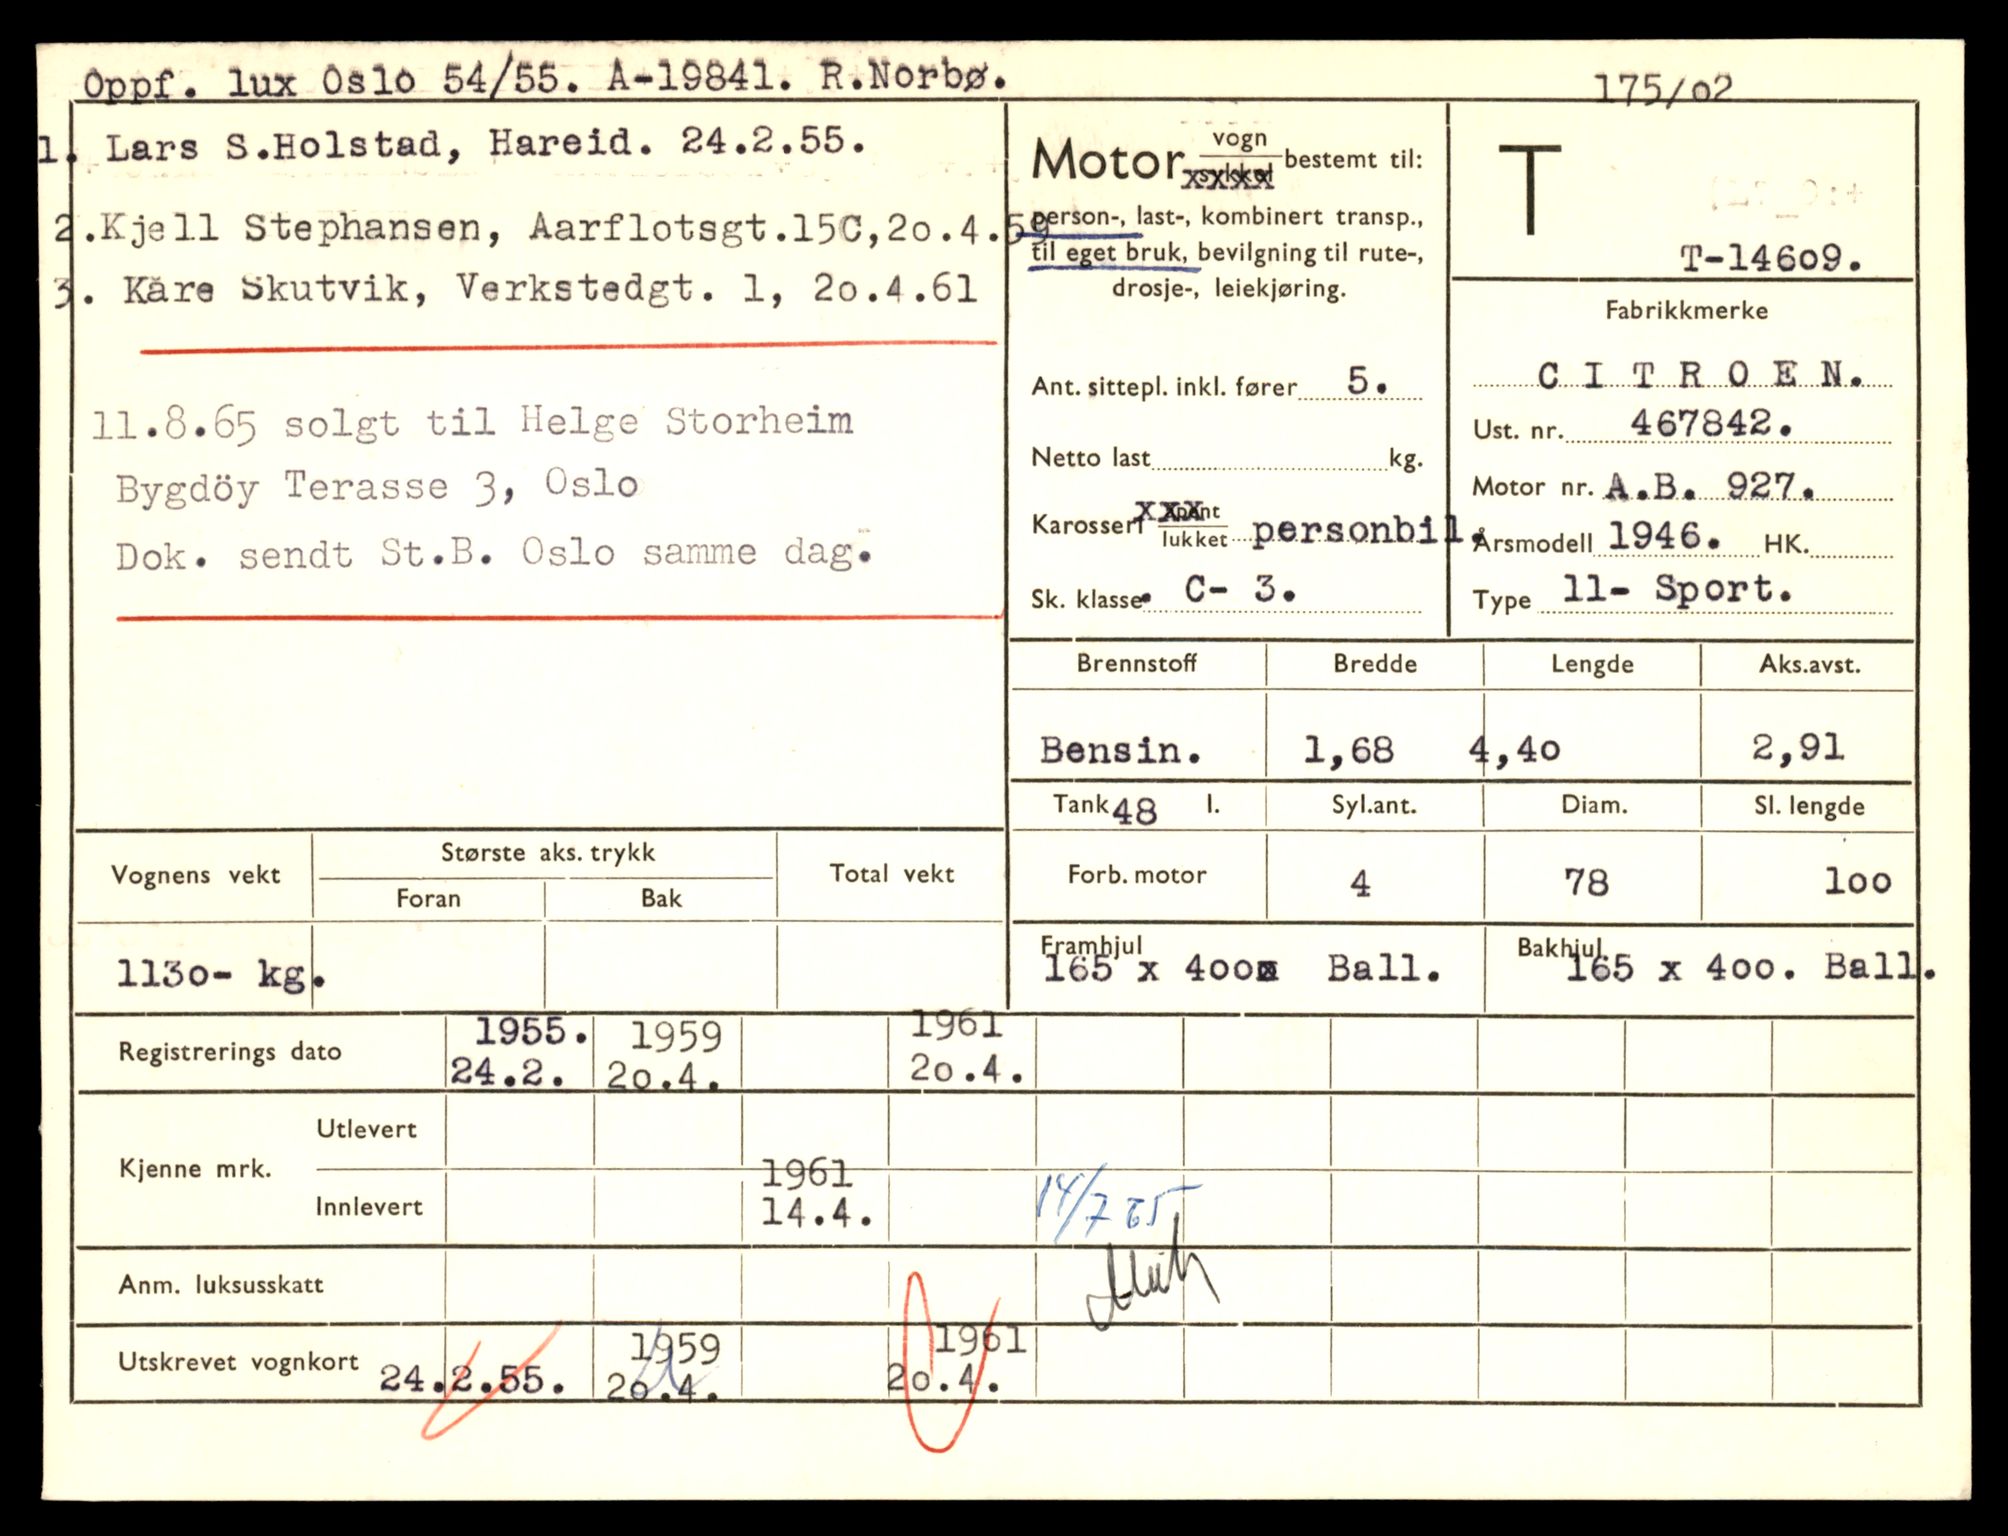 Oppf. lux Oslo 54/55. A-19841. R.Norbø.
175/o2
1. Lars S.Holstad, Hareid. 24.2.55.
2.Kjell Stephansen, Aarflotsgt.15C,2o.4.59
3. Kåre Skutvik, Verkstedgt. 1, 2o.4.61
11.8.65 solgt til Helge Storheim
Bygdöy Terasse 3, Oslo
Dok. sendt St.B. Oslo samme dag.
Motor vogn bestemt til:
person-, last-, kombinert transp.,
til eget bruk, bevilgning til rute-,
drosje-, leiekjøring.
Ant. sittepl. inkl. fører 5.
Netto last kg.
Karosseri åpent lukket personbil.
Sk. klasse. C- 3.
T
T-146o9.
Fabrikkmerke
C I T R O E N.
Ust. nr. 467842.
Motor nr. A.B. 927.
Årsmodell 1946. HK.
Type 11- Sport.
Brennstoff Bredde Lengde Aks.avst.
Bensin. 1,68 4,4o 2,91
Tank 48 l. Syl.ant. Diam. Sl. lengde
Forb. motor 4 78 1oo
Framhjul Bakhjul
165 x 4oo Ball. 165 x 4oo. Ball.
Vognens vekt Største aks. trykk Total vekt
Foran Bak
113o- kg.
Registrerings dato 1955. 1959 1961
24.2. 2o.4. 2o.4.
Kjenne mrk. Utlevert
Innlevert 1961
14.4. 14/7 65
Anm. luksusskatt
Utskrevet vognkort 24.2.55. 1959 1961
2o.4. 2o.4.